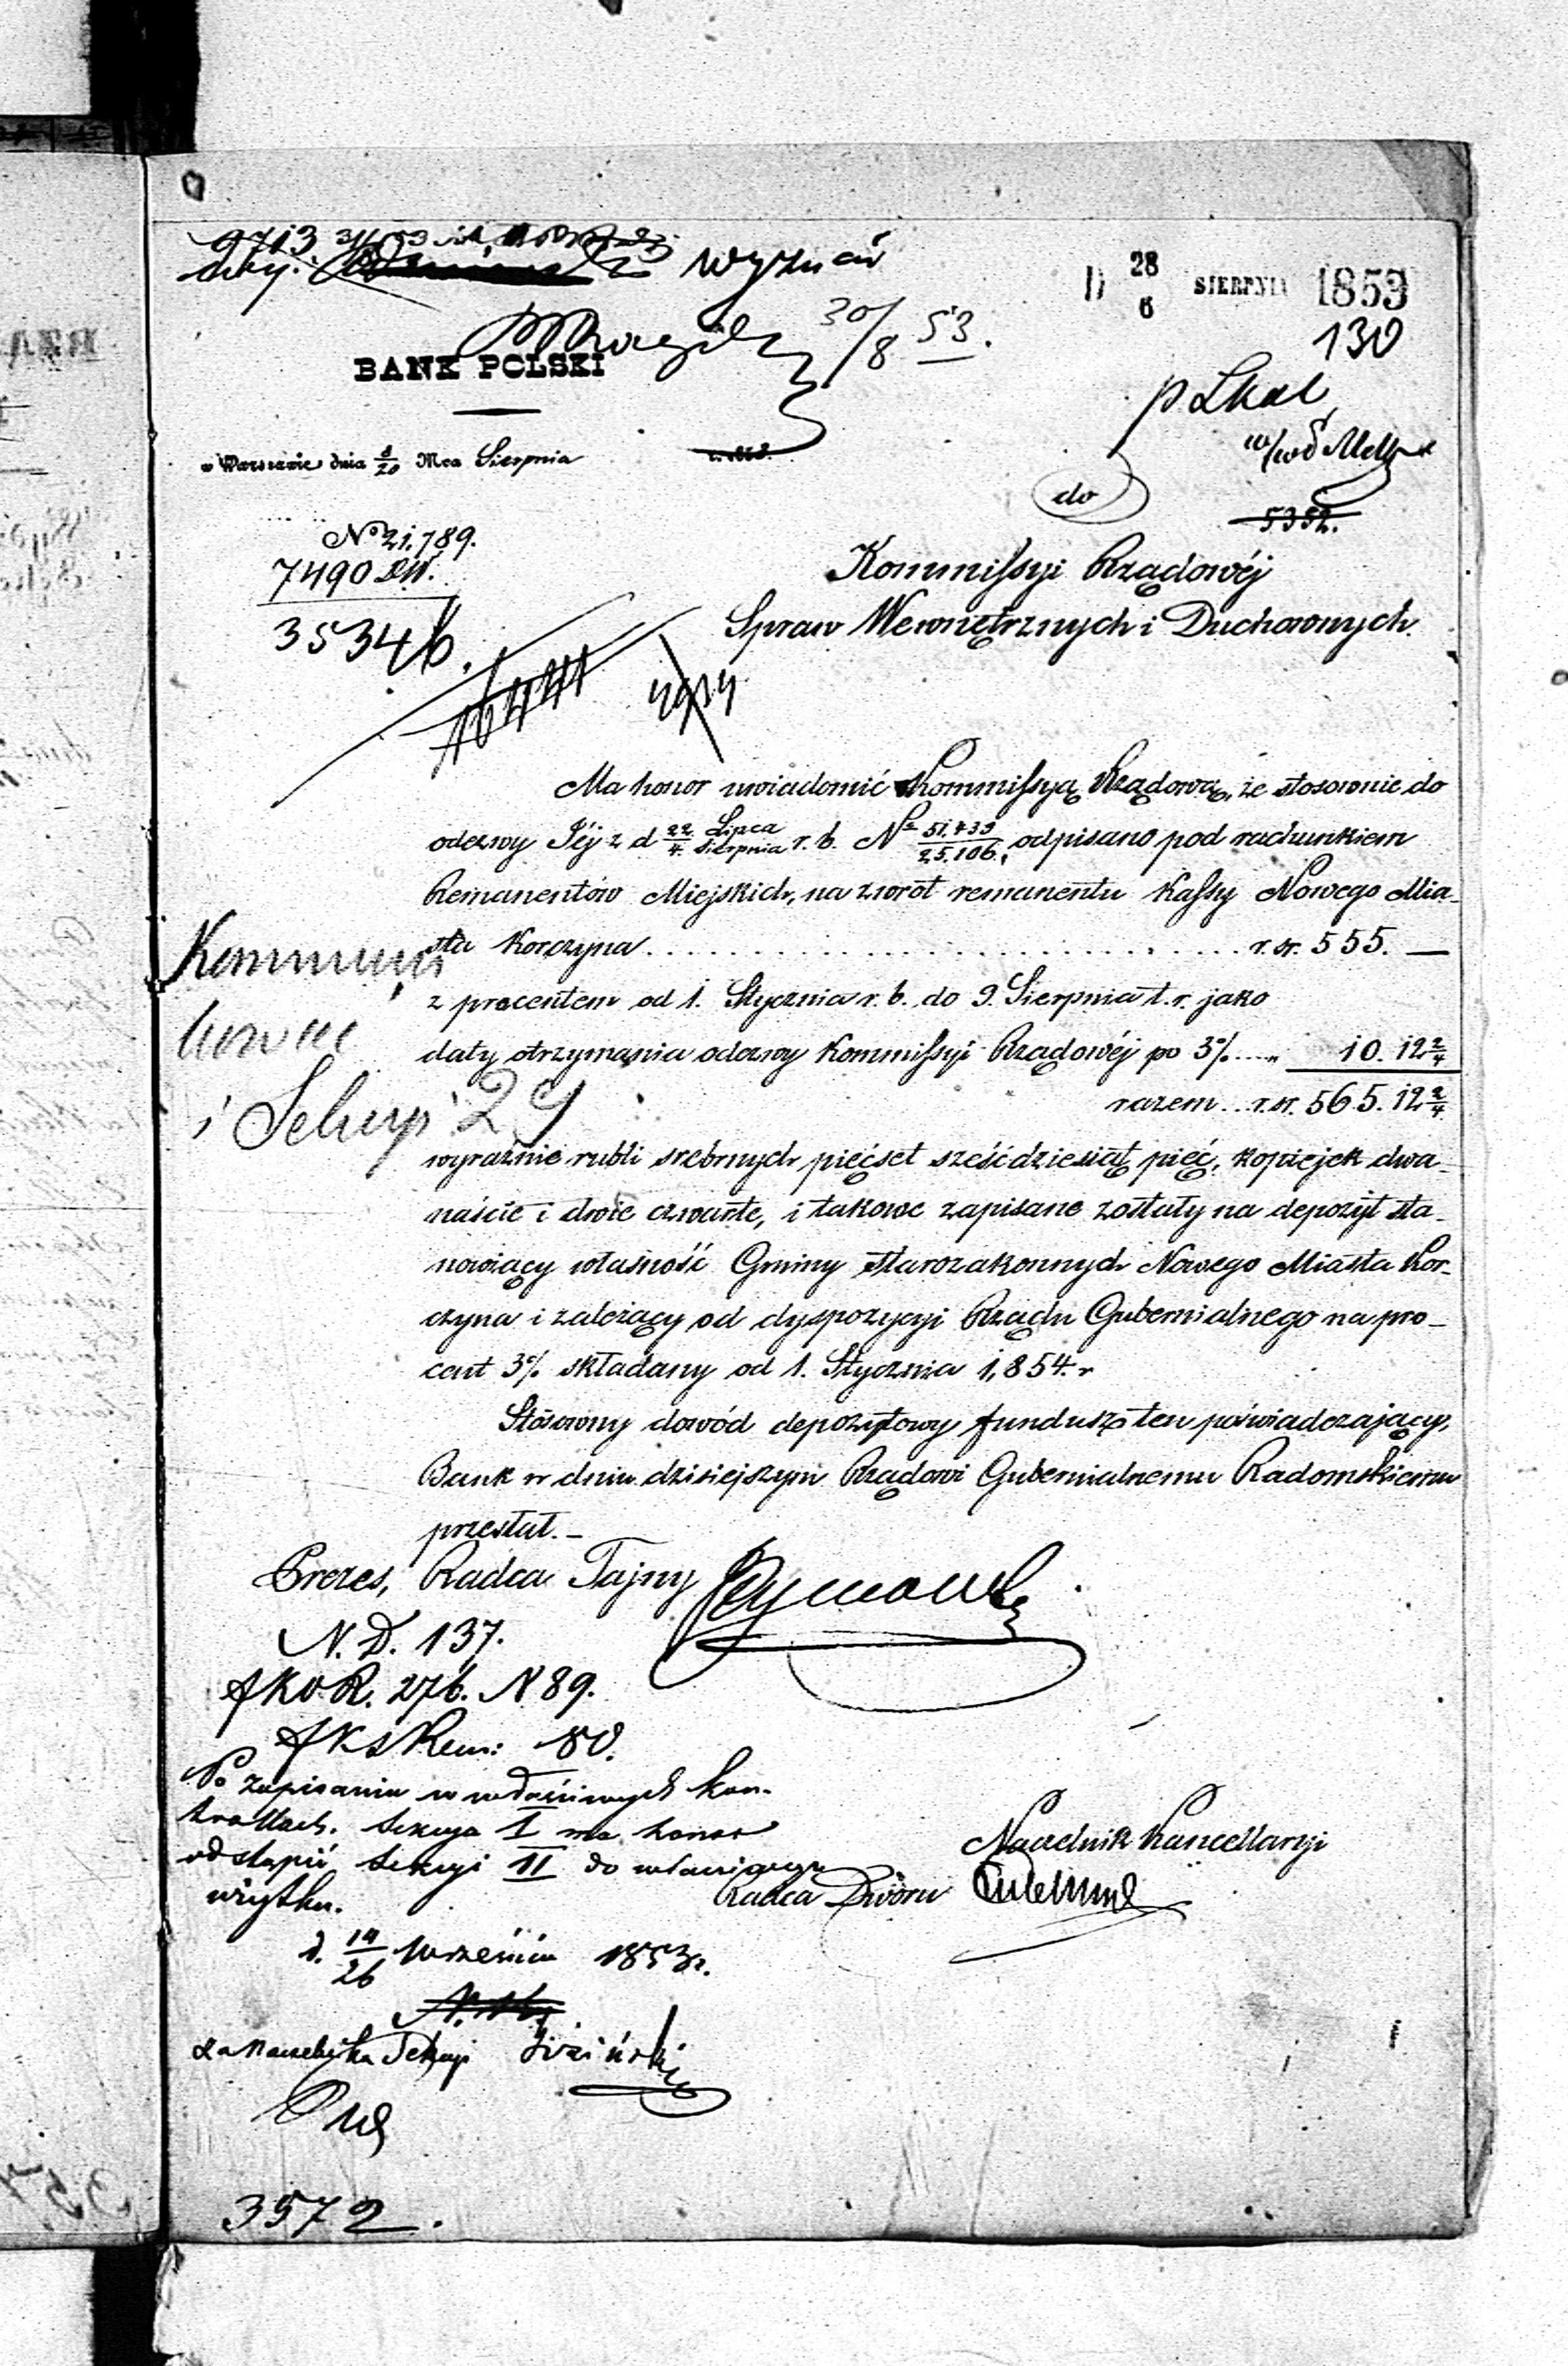 9713
wyznań
D 28 SIERPNIA 1853
6
130
30/8 53.
BANK POLSKI
w Warszawie dnia 8/20 Mca Sierpnia
do
5352.
No 21,789.
7490 DW.
35346.
Kommissyi Rządowéj
Spraw Wewnętrznych i Duchownych.
Ma honor uwiadomić Kommissyą Rządową, że stosownie do
odezwy Jéj z d 22 Lipca/4 Sierpnia r. b. No 51.439/25.106, odpisano pod rachunkiem
Remanentów Miejskich, na zwrot remanentu Kassy Nowego Mia-
sta Korczyna . . . . . . r. sr. 555. —
z procentem od 1. Stycznia r. b. do 9. Sierpnia t. r. jako
daty otrzymania odezwy Kommissyi Rządowéj po 3% .... „ 10. 12 2/4
razem... r. sr. 565. 12 2/4
wyraźnie rubli srebrnych pięćset sześćdziesiąt pięć, kopiejek dwa-
naście i dwie czwarte, i takowe zapisane zostały na depozyt sta-
nowiący własność Gminy Starozakonnych Nowego Miasta Kor-
czyna i zależący od dyspozycyi Rządu Gubernialnego na pro-
cent 3% składany od 1. Stycznia 1,854. r
Stósowny dowód depozytowy fundusz ten poświadczający,
Bank w dniu dzisiejszym Rządowi Gubernialnemu Radomskiemu
przesłał. –
Prezes, Radca Tajny
N. D. 137.
R. 276. N 89.
Rem: 80.
Po zapisaniu w właściwych kon-
trollach. Sekcya I ma honor
odstąpić Sekcyi II do właściwego
użytku.
d. 14/26 Września 1853 r.
Za Naczelnika Sekcyi
Naczelnik Kancellaryi
Radca Dworu
3572.